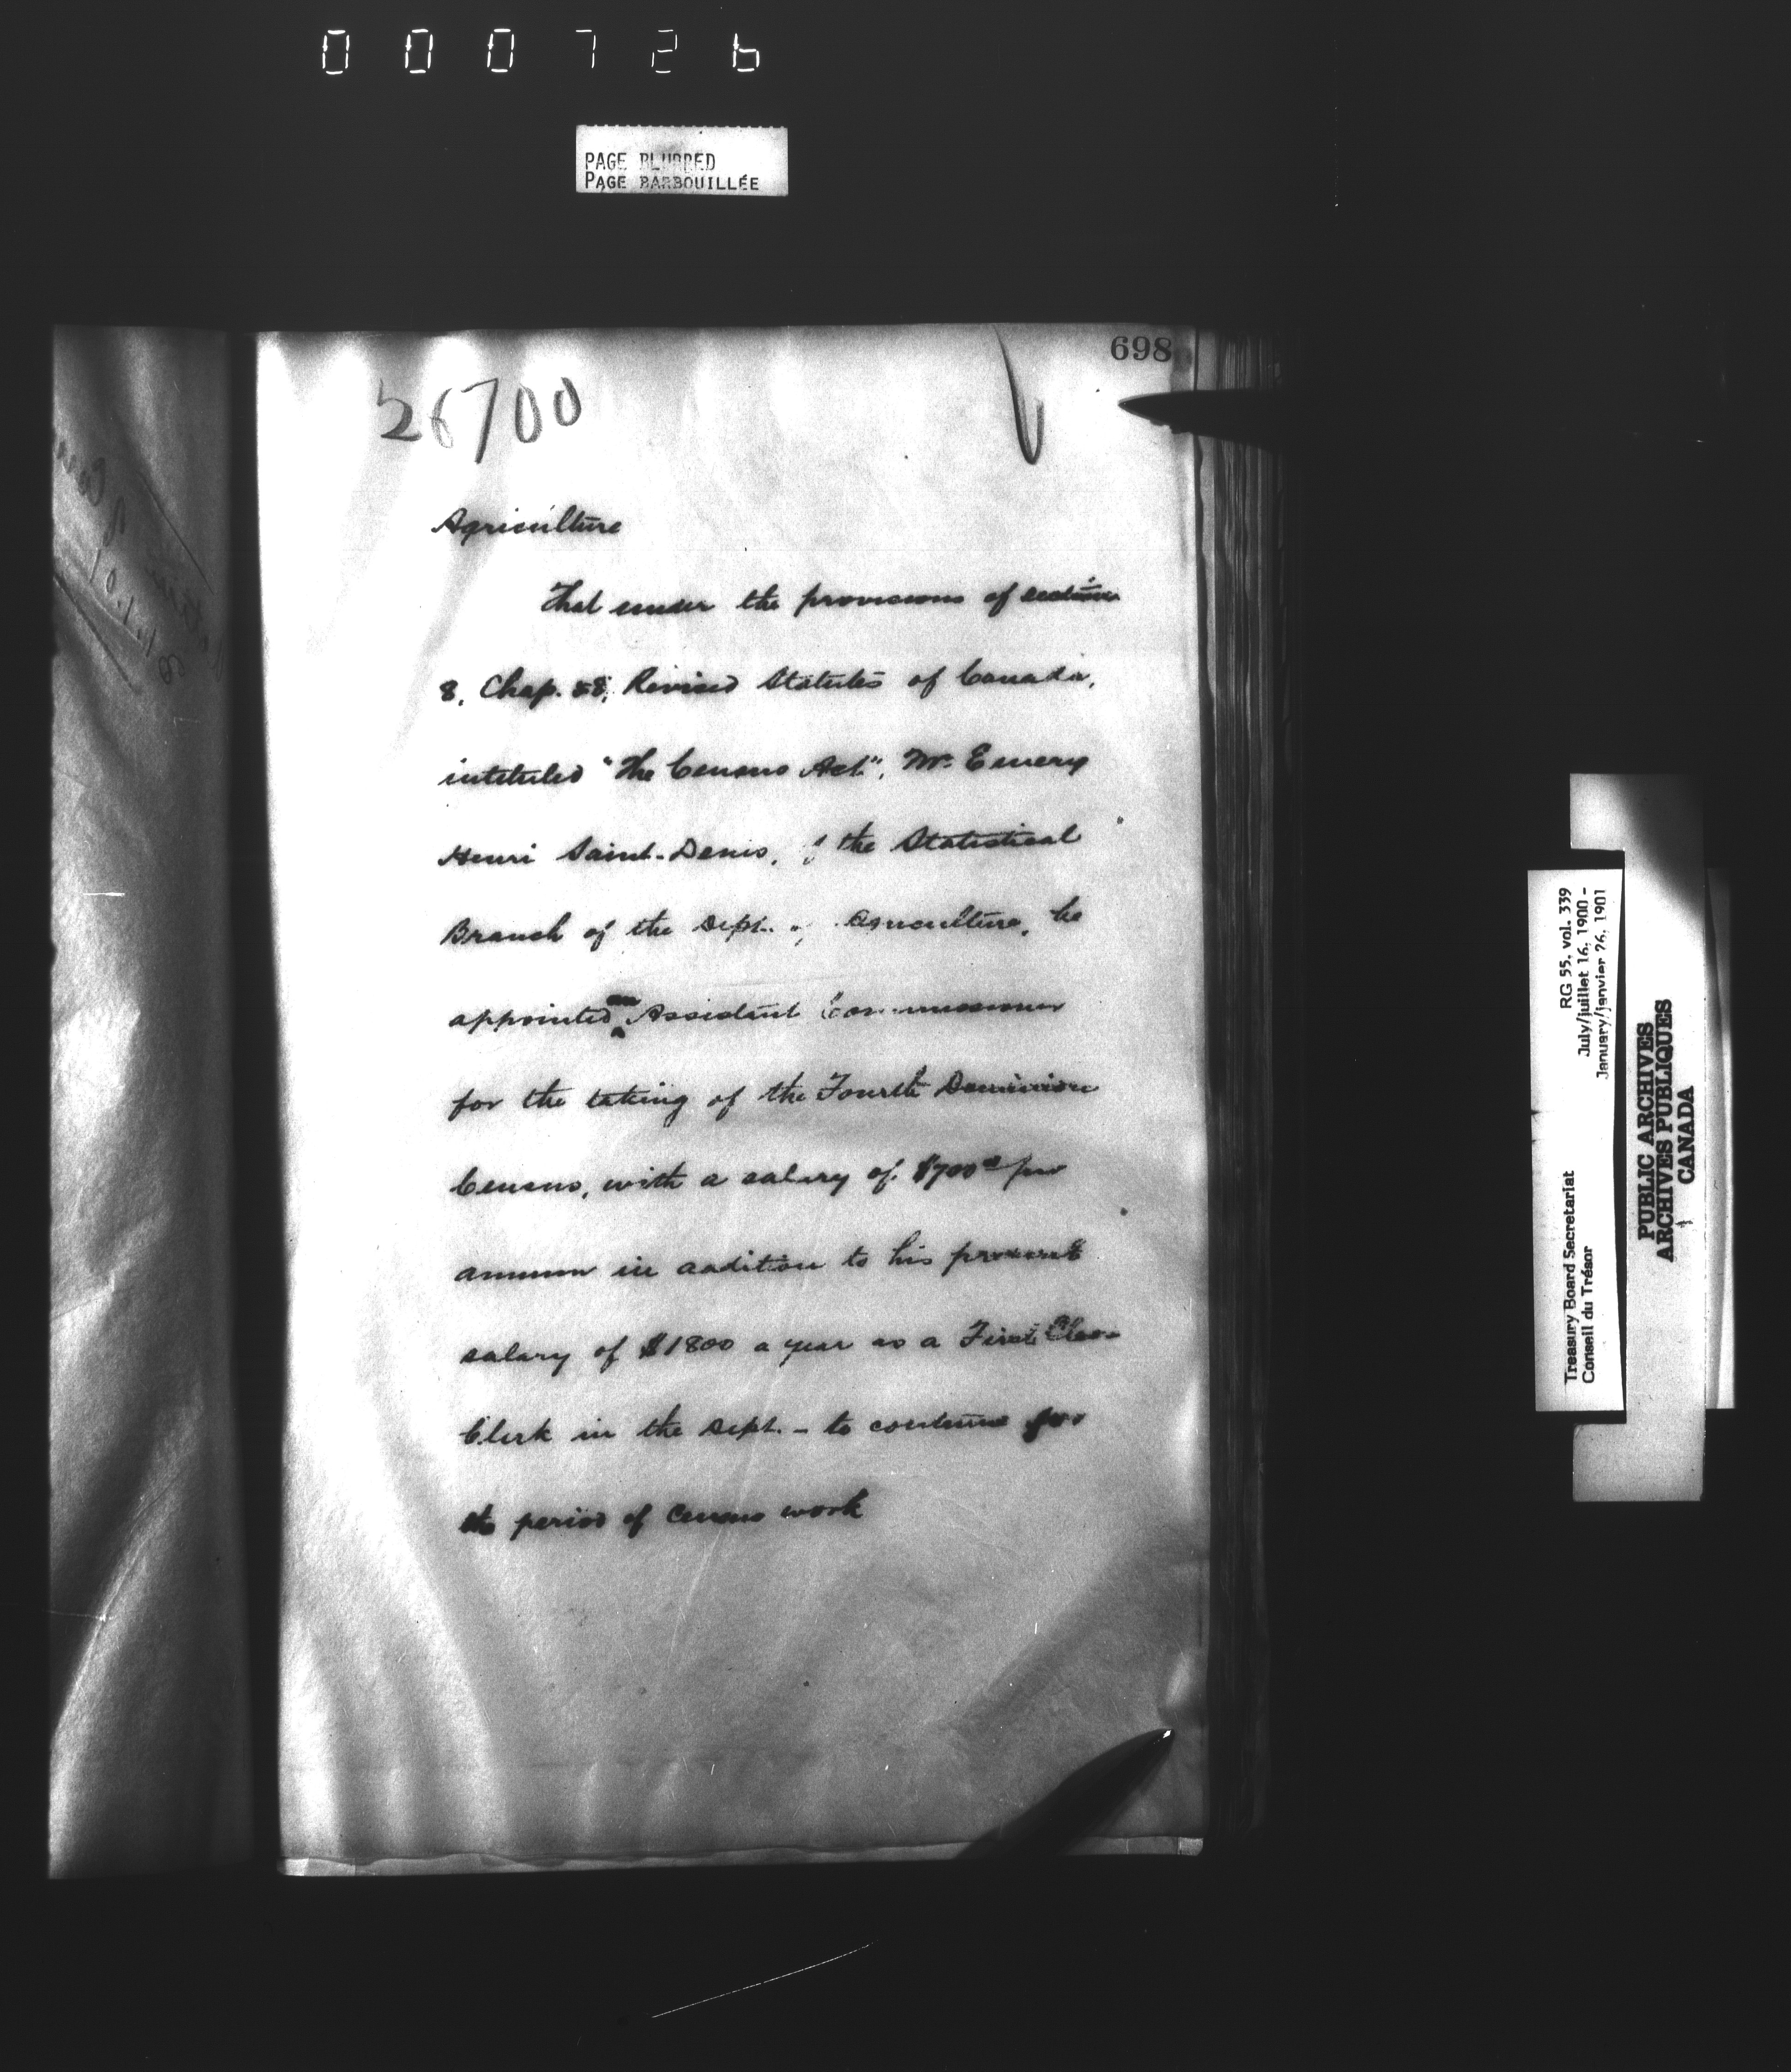 000726
PAGE BLURRED
PAGE BARBOUILLÉE
698
26700
Agriculture
That under the provisions of section
8, Chap. 58, Revised Statutes of Canada,
intituled "The Census Act", Mr. Emery
Henri Saint-Denis, of the Statistical
Branch of the Dept. of Agriculture, be
appointed an Assistant Commissioner
for the taking of the Fourth Dominion
Census, with a salary of $700 per
annum in addition to his present
salary of $1800 a year as a First Class
Clerk in the Dept. - to continue for
the period of Census work
Treasury Board Secretariat RG 55, vol. 339
Conseil du Trésor July/juillet 16, 1900 -
January/janvier 26, 1901
PUBLIC ARCHIVES
ARCHIVES PUBLIQUES
CANADA